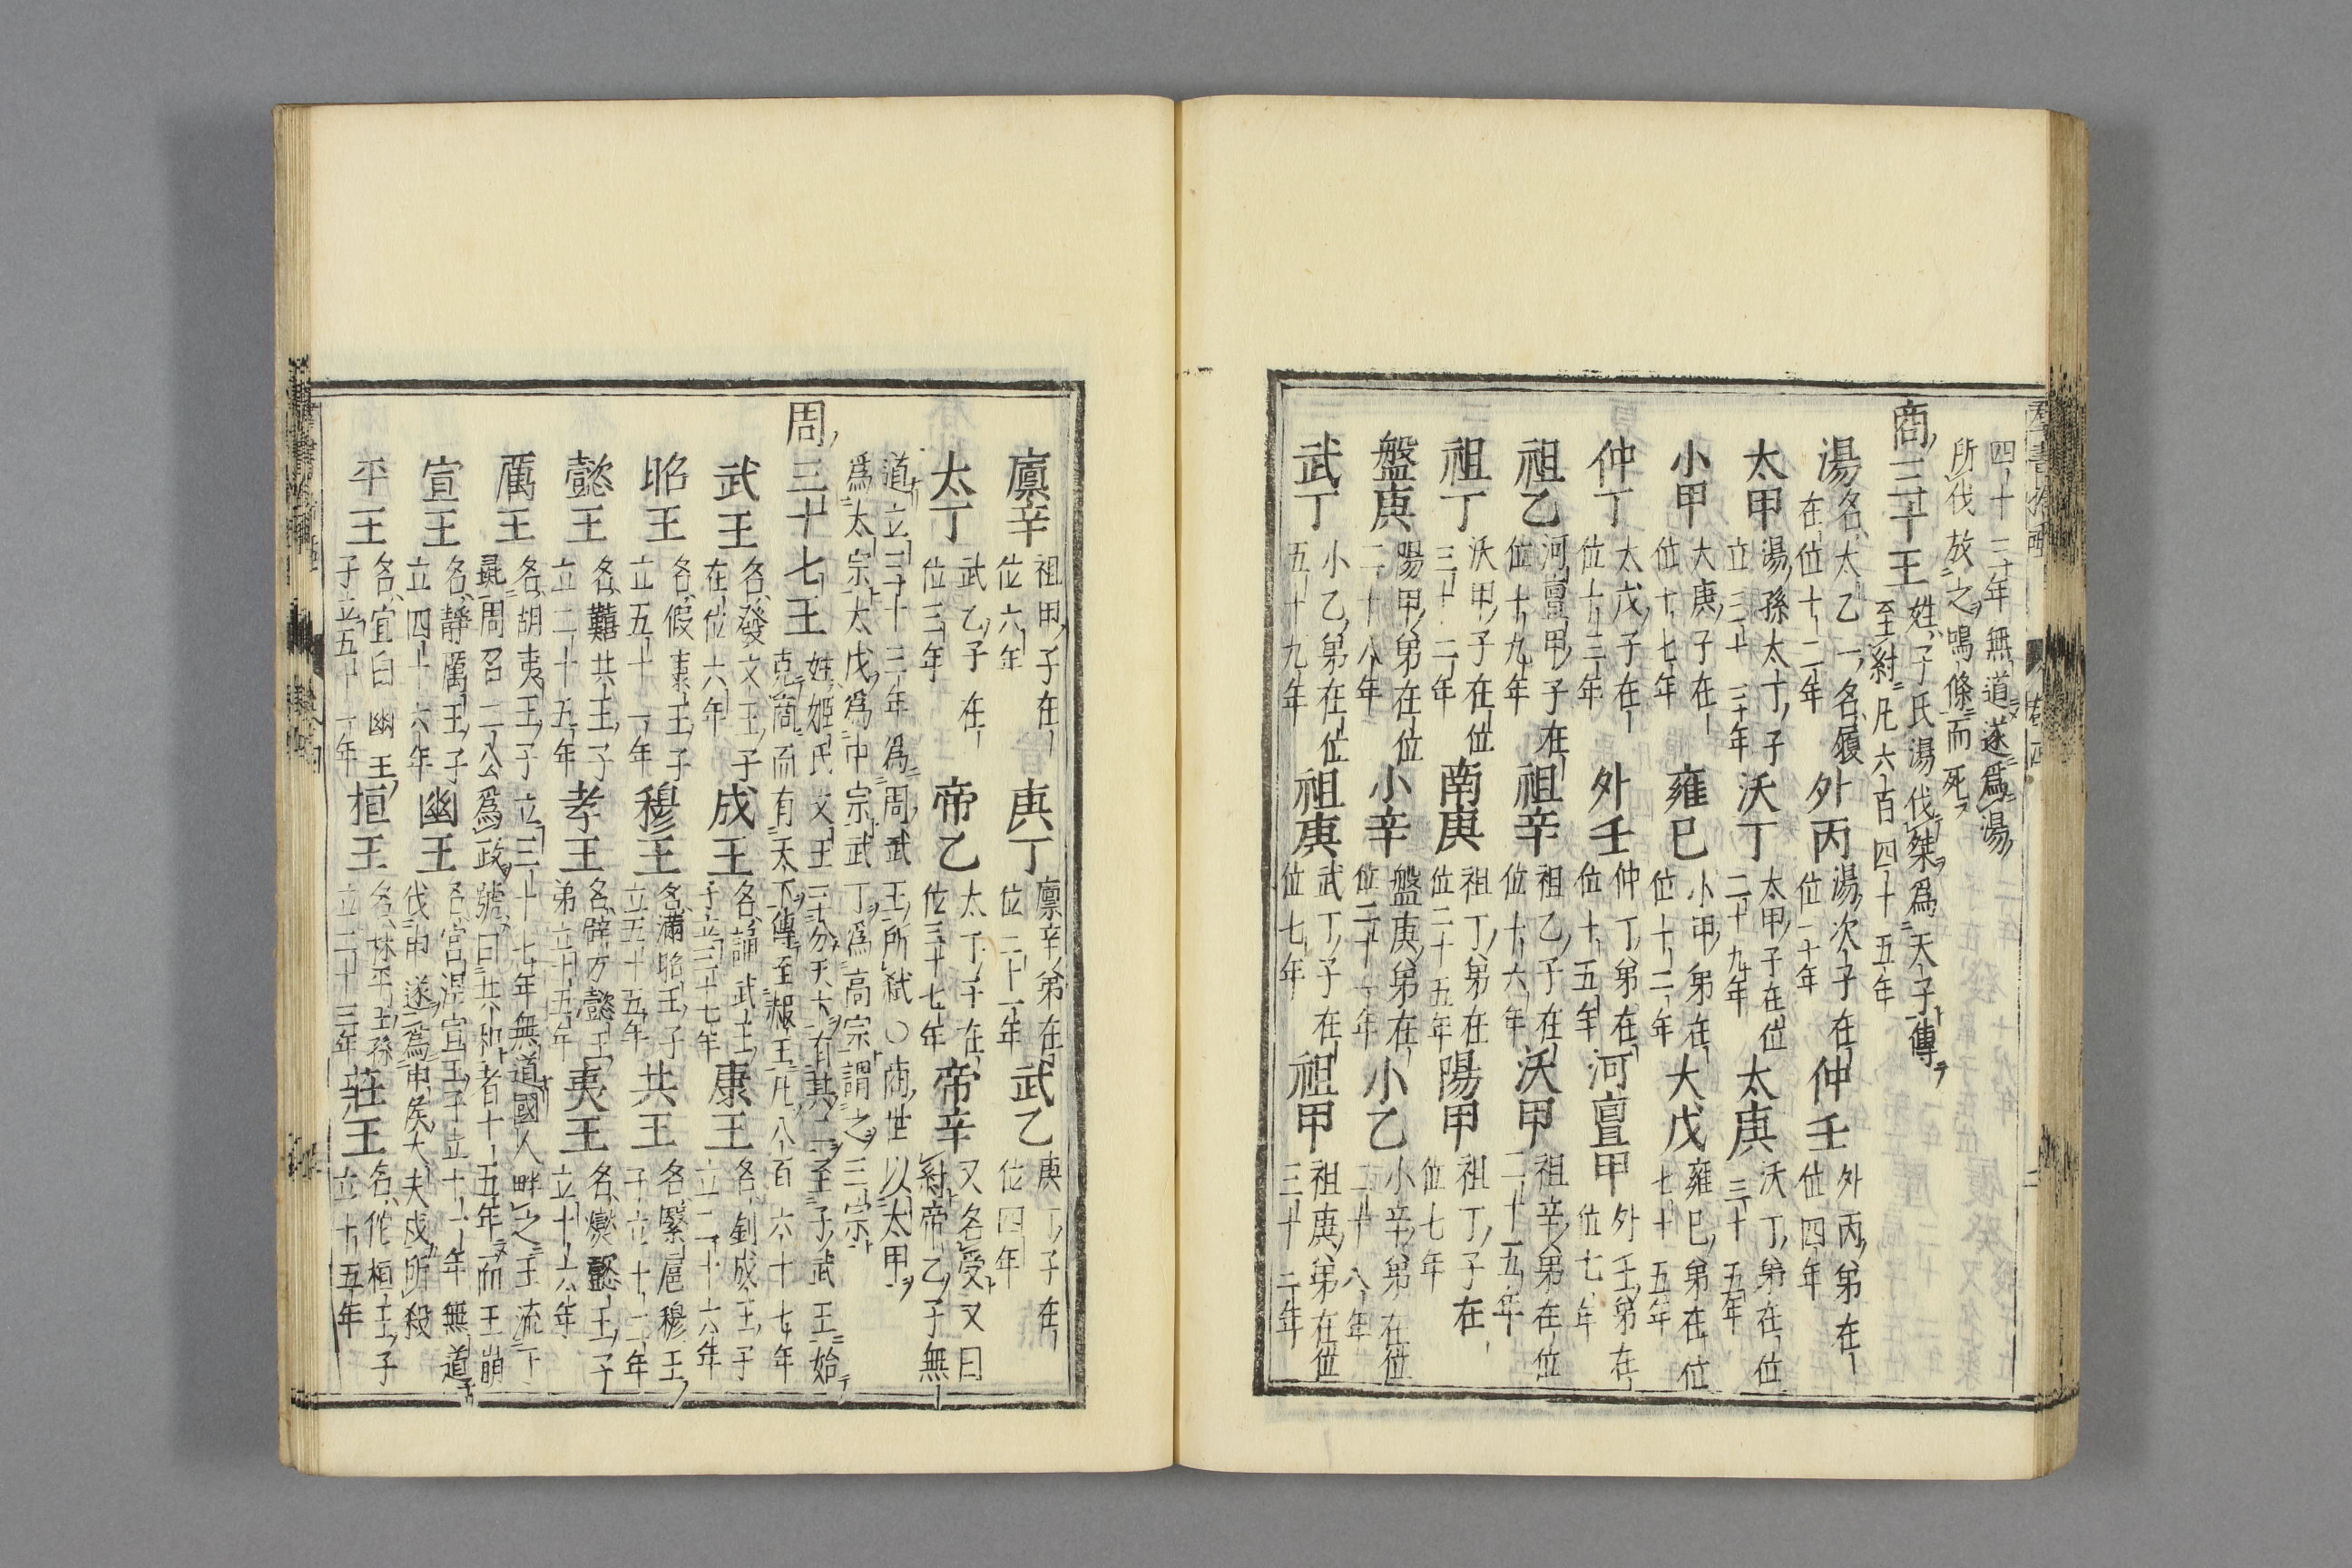 四十三年無道遂爲湯
所伐放之鳴條而死
商三十王 姓子氏湯伐桀爲天子傳
至紂凡六百四十五年
湯 名太乙一名履
在位十二年 外丙 湯次子在
位一十年 仲壬 外丙弟在
位四年
太甲 湯孫太丁子
立三十三年 沃丁 太甲子在位
二十九年 太庚 沃丁弟在位
三十五年
小甲 大庚子在
位十七年 雍巳 小甲弟在
位十二年 大戊 雍巳弟在位
七十五年
仲丁 太戊子在
位十三年 外壬 仲丁弟在
位十五年 河亶甲 外壬弟在
位七年
祖乙 河亶甲子在
位十九年 祖辛 祖乙子在
位十六年 沃甲 祖辛弟在位
二十五年
祖丁 沃甲子在位
三十二年 南庚 祖丁弟在
位二十五年 陽甲 祖丁子在
位七年
盤庚 陽甲弟在位
二十八年 小辛 盤庚弟在
位二十一年 小乙 小辛弟在位
二十八年
武丁 小乙弟在位
五十九年 祖庚 武丁子在
位七年 祖甲 祖庚弟在位
三十二年
廩辛 祖甲子在
位六年 庚丁 廩辛弟在
位二十一年 武乙 庚丁子在
位四年
太丁 武乙子在
位三年 帝乙 太丁子在
位三十七年 帝辛 又名受又曰
紂帝乙子無
道立三十三年爲周武王所弑○商世以太甲
爲太宗太戊爲中宗武丁爲高宗謂之三宗
周三十七王 姓姬氏文王三分天下有其二至子武王始
克商而有天下傳至赧王凡八百六十七年
武王 名發文王子
在位六年 成王 名誦武王
子立三十七年 康王 名釗成王子
立二十六年
昭王 名假康王子
立五十一年 穆王 名滿昭王子
立五十五年 共王 名繄扈穆王
子立十二年
懿王 名囏共王子
立二十五年 孝王 名辟方懿王
弟立十五年 夷王 名燮懿王子
立十六年
厲王 名胡夷王子立三十七年無道國人畔之王流于
彘周召二公爲政號曰共和者十五年而王崩
宣王 名靜厲王子
立四十六年 幽王 名宮湼宣王子立十一年無道
伐申遂爲申侯犬夫戎所殺
平王 名宜臼幽王
子立五十一年 桓王 名林平王孫
立二十三年 莊王 名佗桓王子
立十五年